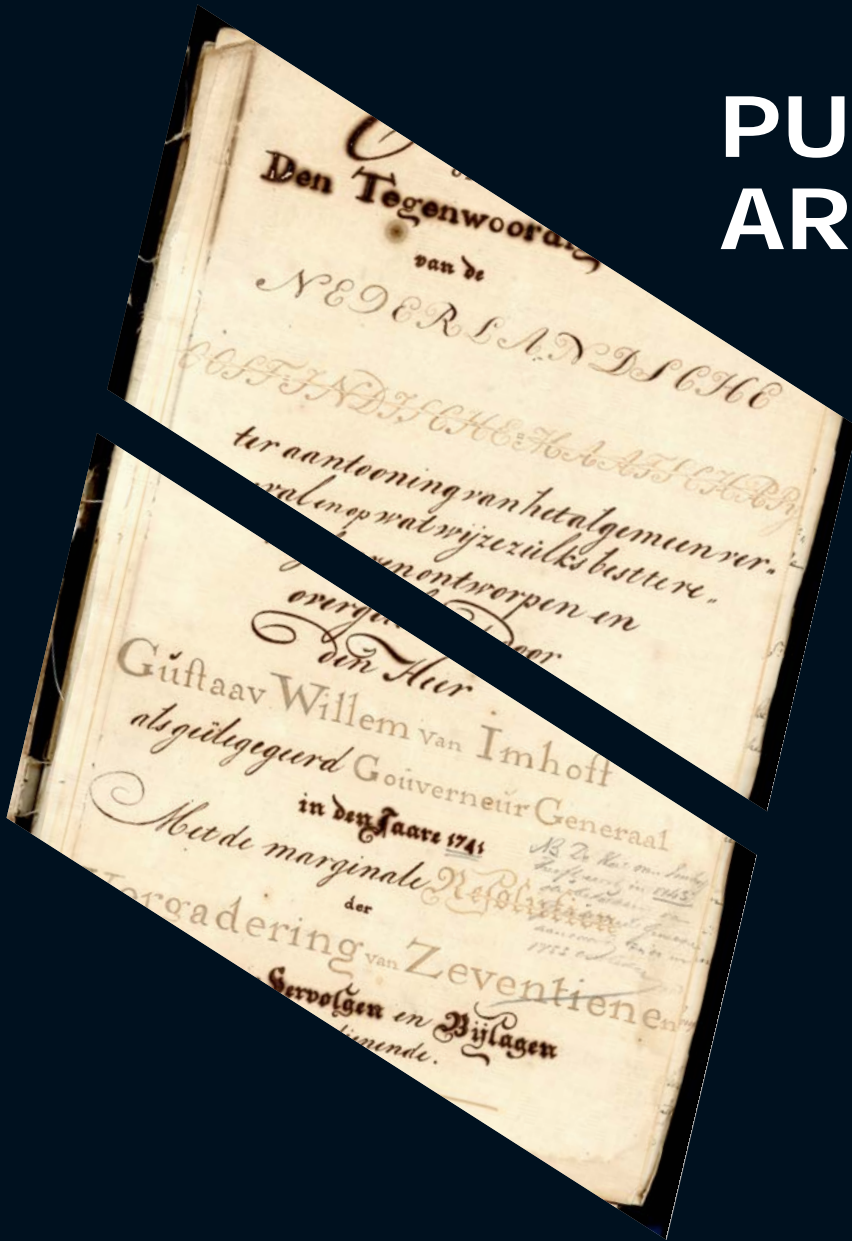 PU
AR
Den Tegenwoordig
van de
NEDERLANDSCHE
OOST-INDISCHE MAATSCHAPPY
ter aantooning van het algemeen ver-
val en op wat wijze zulks besttere-
en ontworpen en
overge oor
den Heer
Gustaav Willem van Imhoff
als geülegegeerd Gouverneur Generaal
in den Jaare 1741
Met de marginale Resolutien
der
Vergadering van Zeventienen
Vervolgen en Bijlagen
dienende.